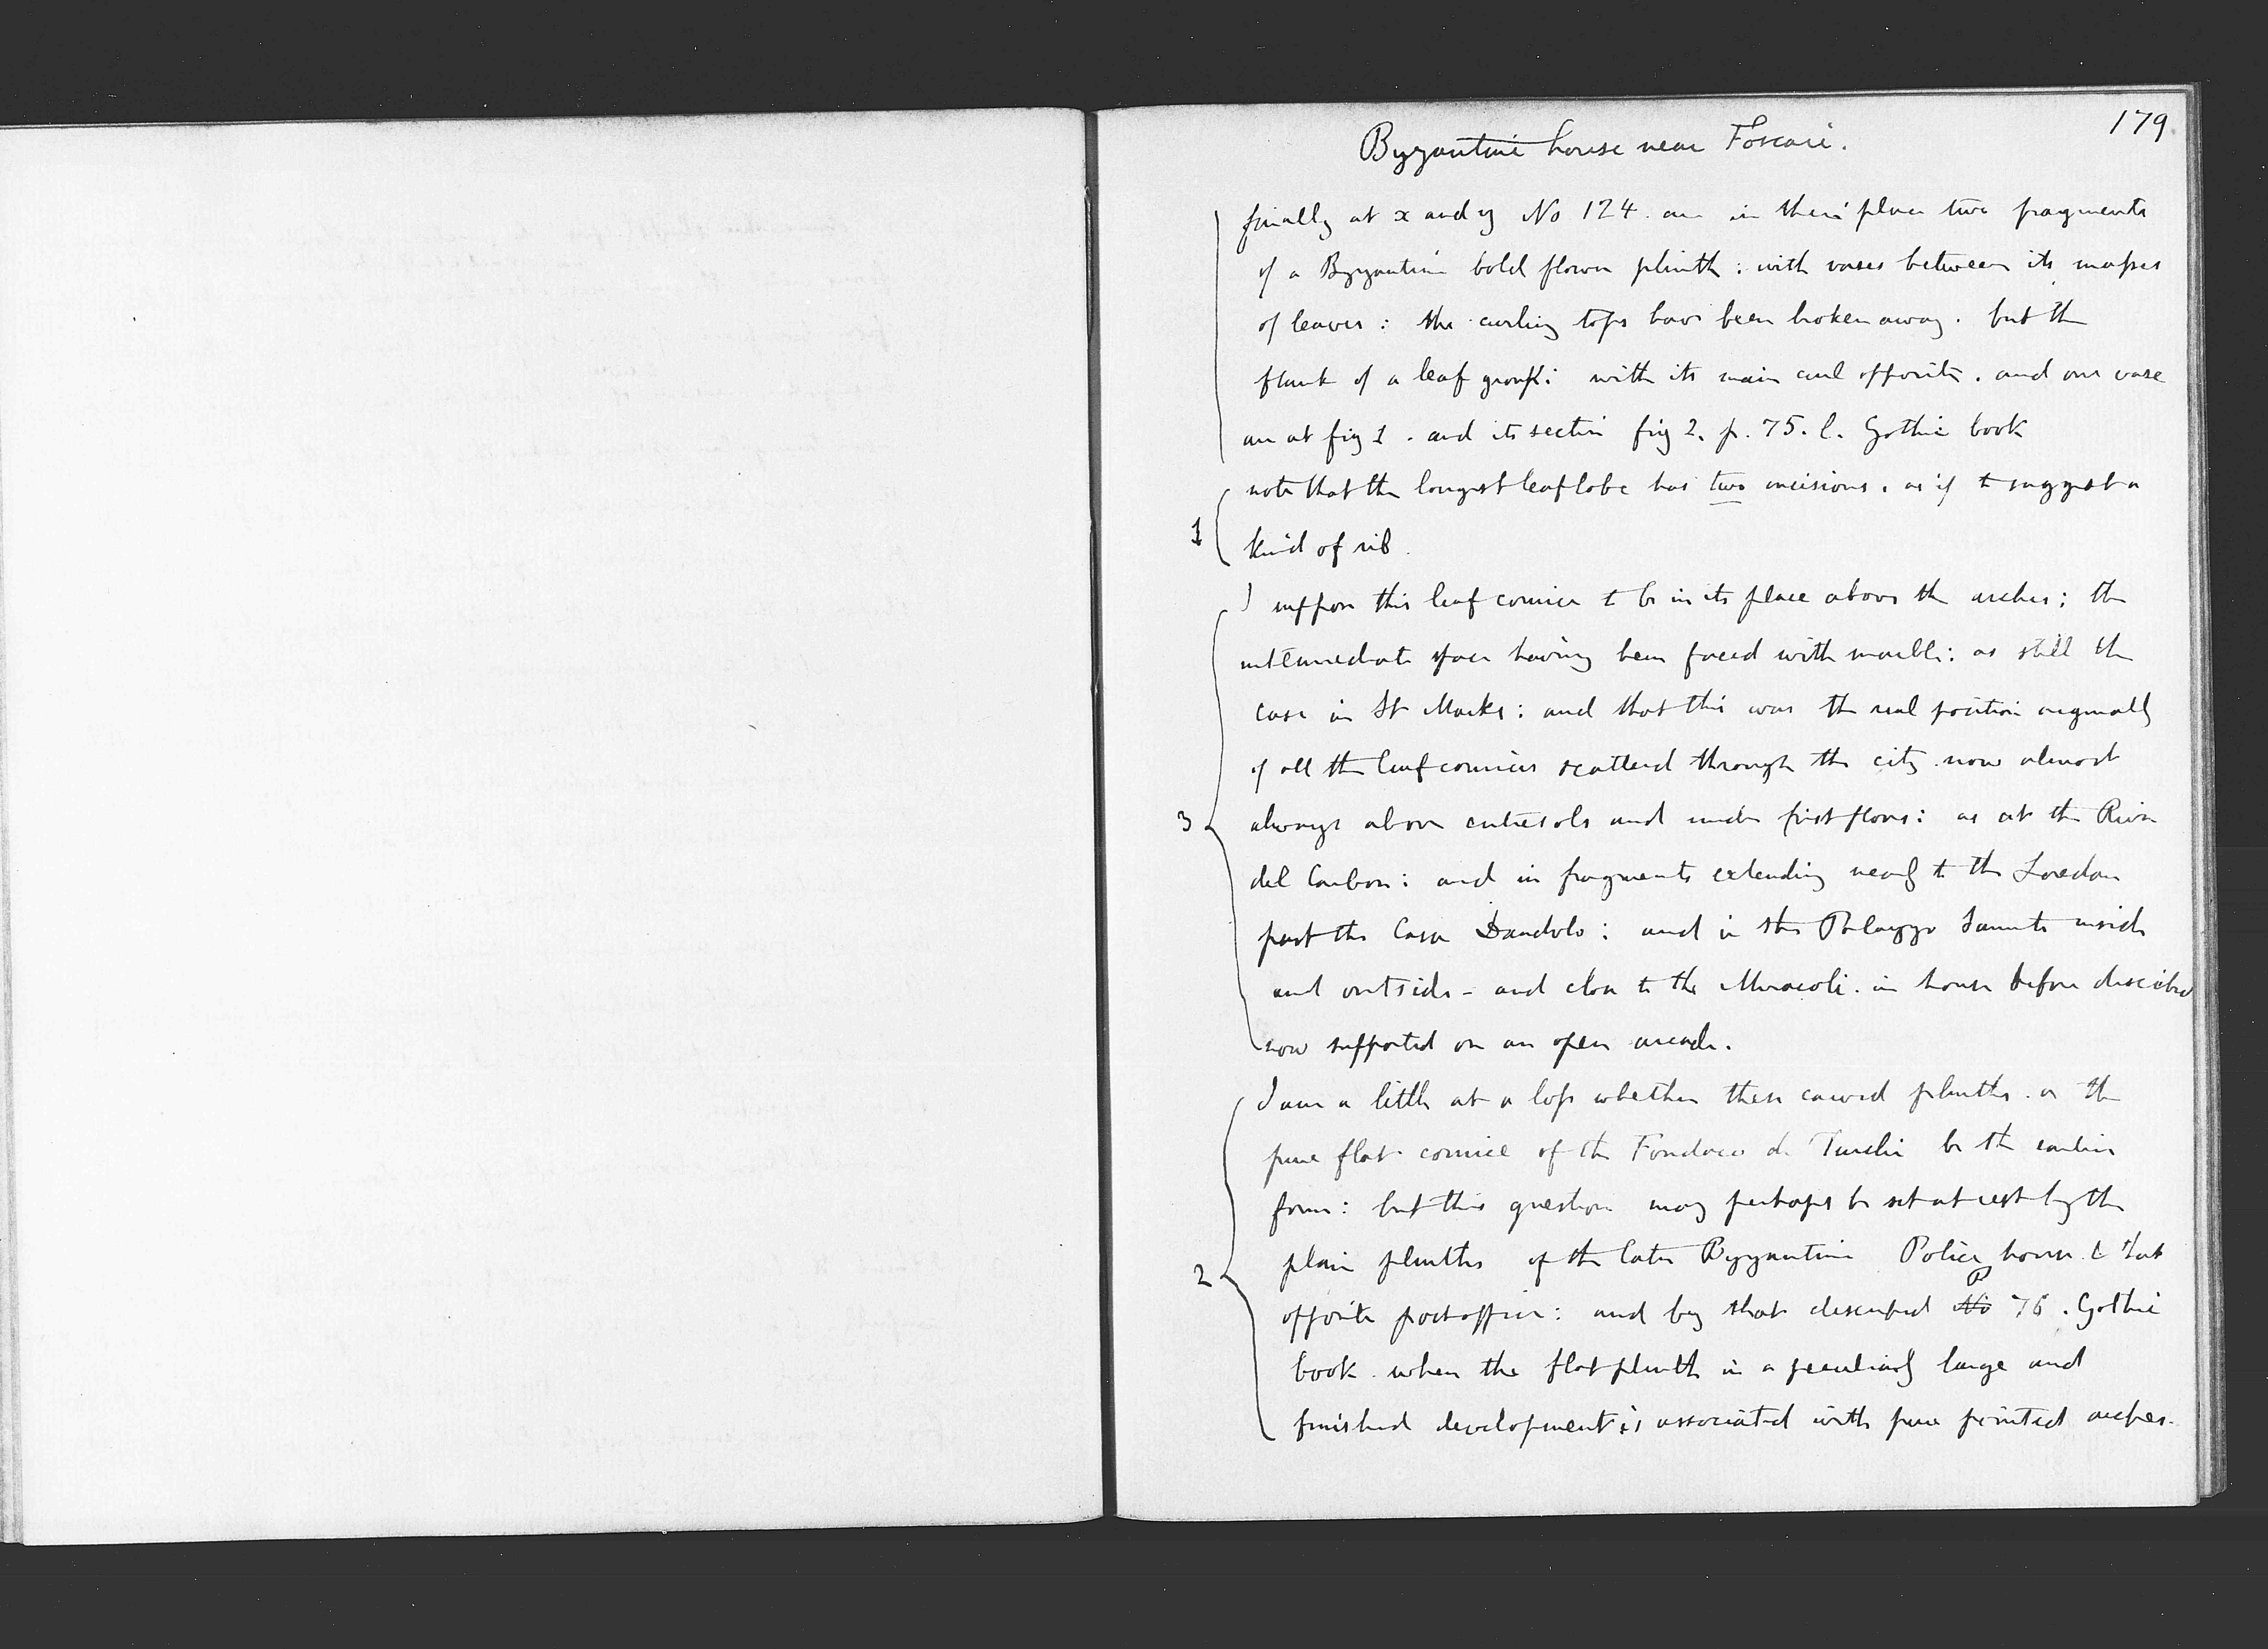 179
Byzantine house near Foscari.
finally at x and y No 124. are in their place two fragments
of a Byzantine bold flower plinth: with vases between its masses
of leaves: the curling tops have been broken away. but the
flank of a leaf group: with its main curl opposite. and one vase
are at fig 1. and its section fig 2. p. 75. l. Gothic book
note that the longest leaf lobe has two incisions. as if to suggest a
1 kind of rib.
I suppose this leaf cornice to be in its place above the arches; the
intermediate space having been faced with marble: as still the
case in St Marks: and that this was the real position originally
of all the leaf cornices scattered through the city. now almost
3 always above entresols and under first floors: as at the Riva
del Carbon: and in fragments extending nearly to the Loredan
past the Casa Dandolo: and in the Palazzo Sanuto inside
and outside - and close to the Miracoli. in house before described
now supported on an open arcade.
I am a little at a loss whether these carved plinths. or the
pure flat cornice of the Fondaco de Turchi be the earlier
form: but this question may perhaps be set at rest by the
2 plain plinths of the late Byzantine Police house & that
opposite post office: and by that described No P 76. Gothic
book. when the flat plinth in a peculiarly large and
finished development is associated with pure pointed arches.